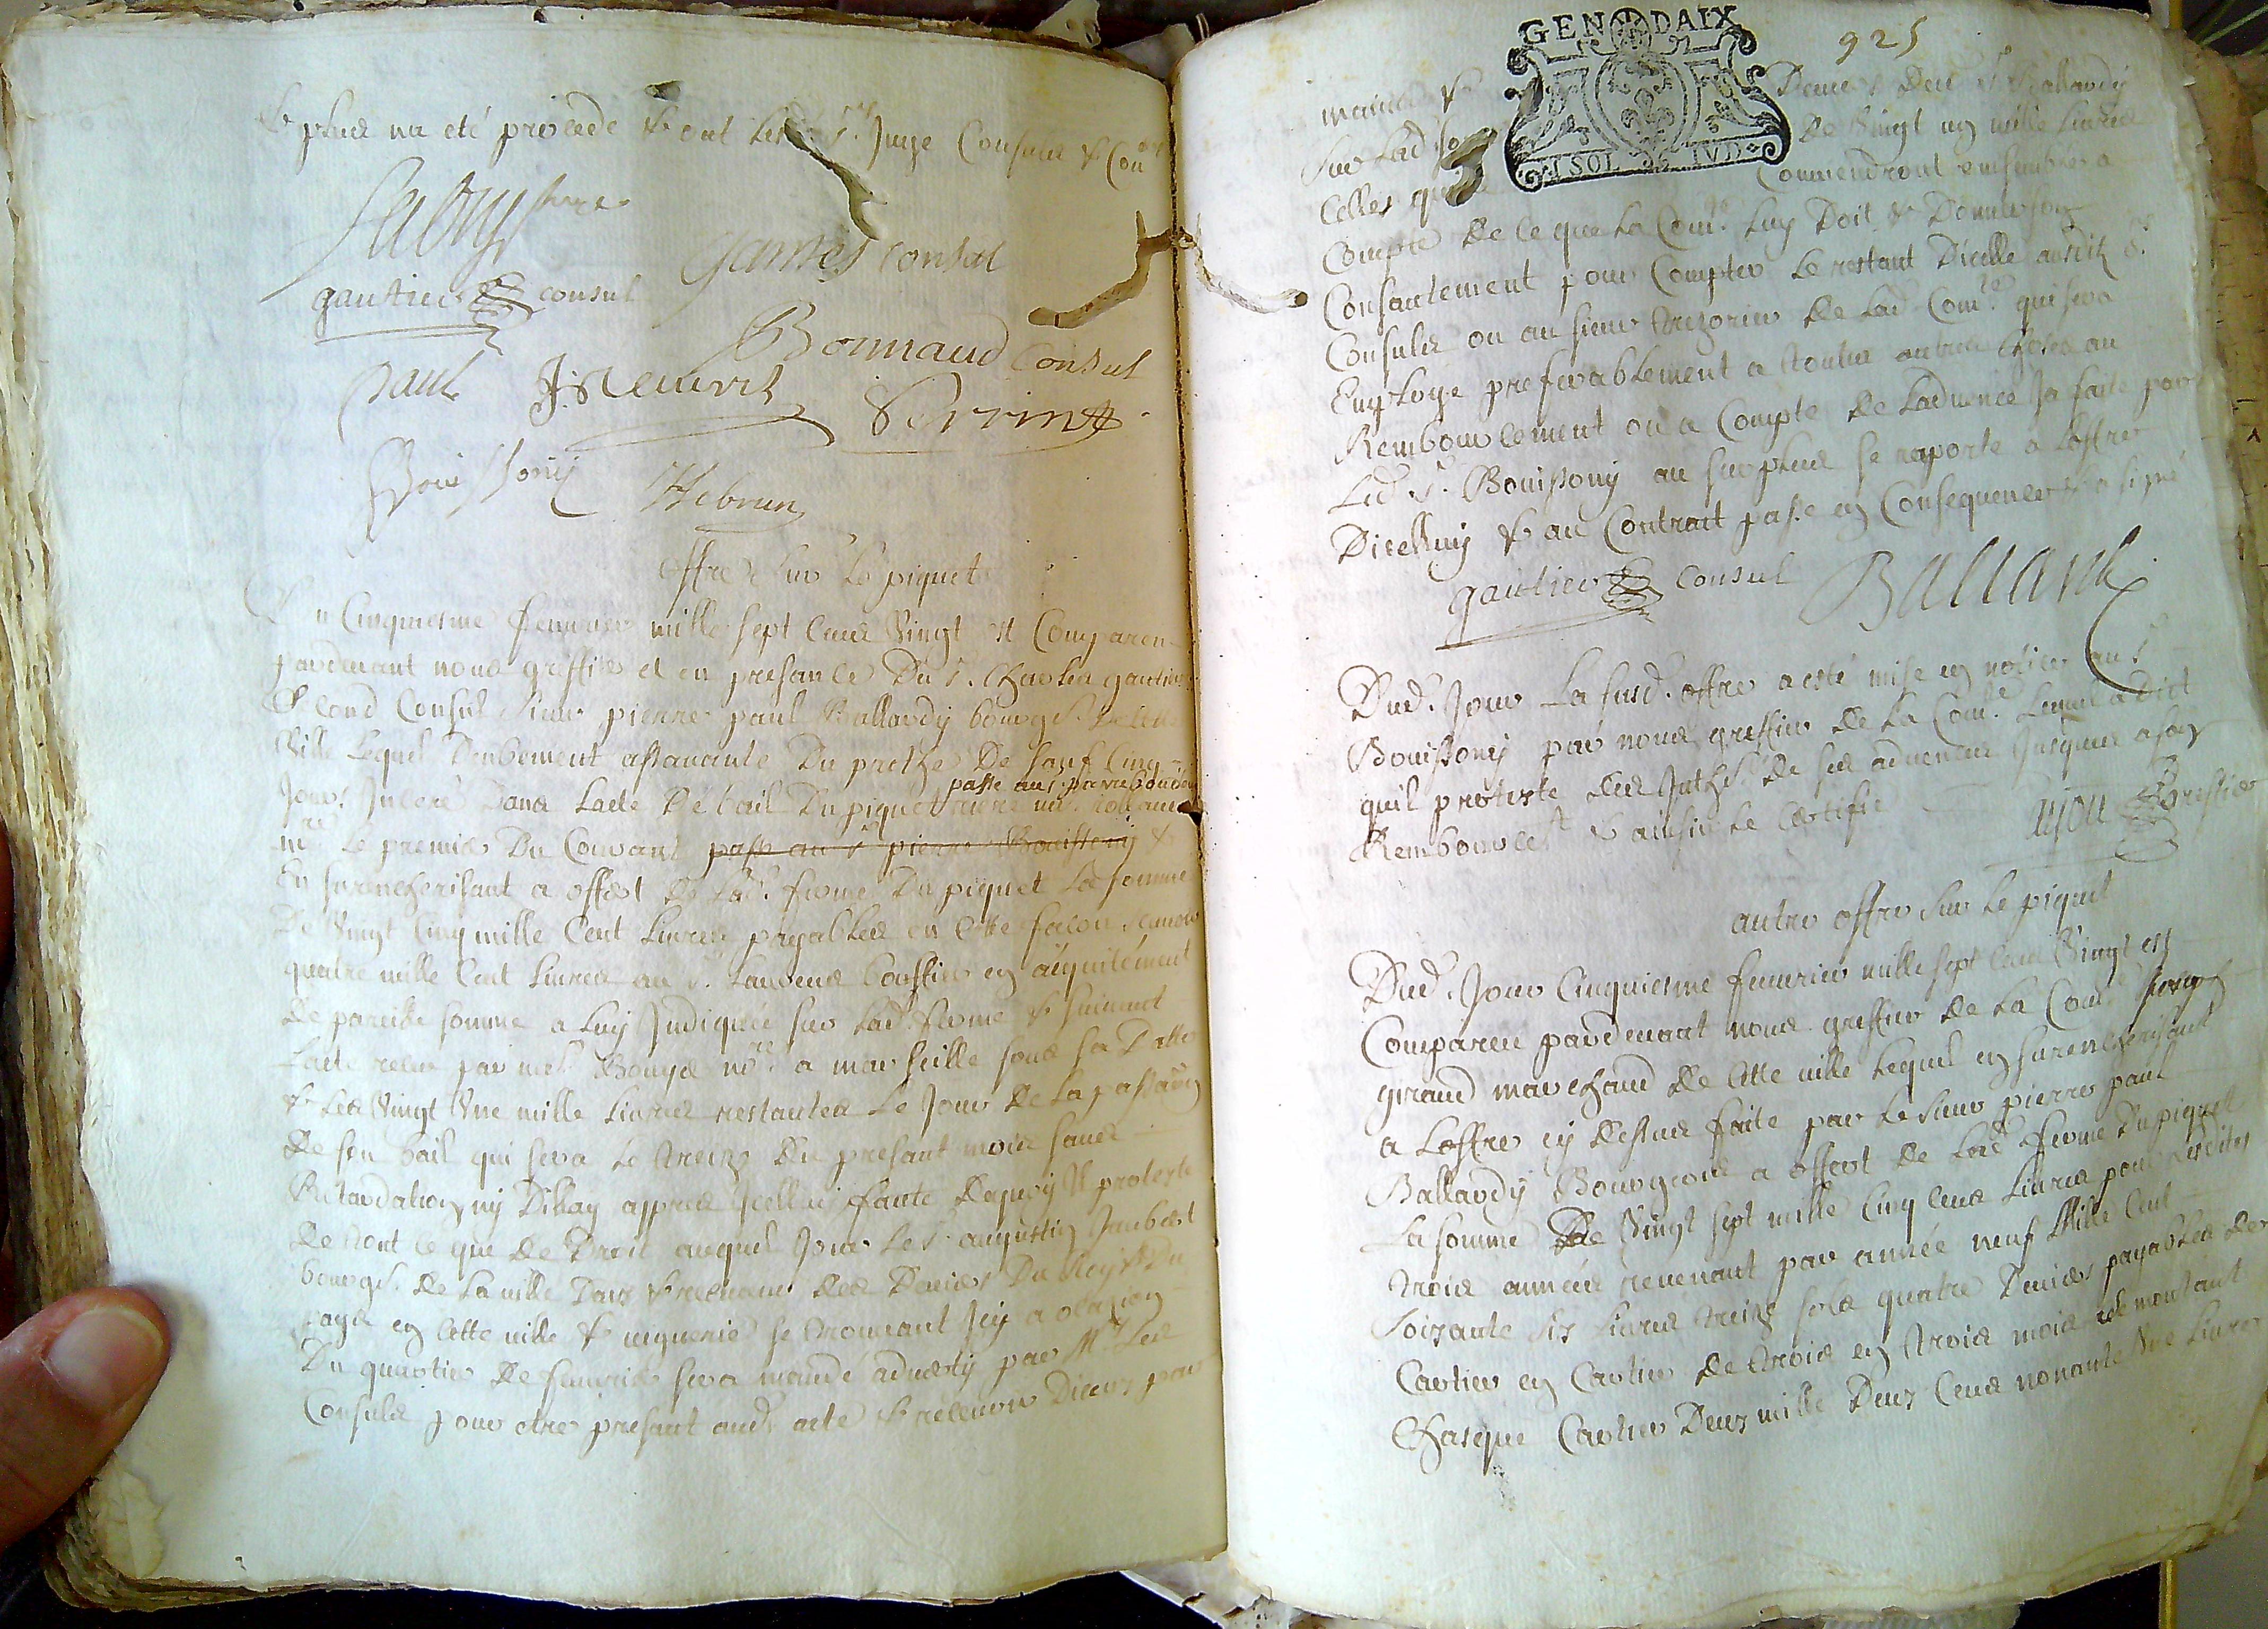 Et plus na eté procedé & ont Lesd. Srs. Juge Consuls & Con
Juge
gautier consul
Garnies consul
Bonnaud consul
paul
Perrin
Bouissony
Hebrun
offre sur Le piquet
Du Cinquiesme feuvrier mille sept Cens Vingt est Comparen
pardevant nous greffier et en presance Du Sr. Charles gautier
Second Consul Sieur pierre paul Ballardy bourgs. De cette
Ville Lequel Deubement assavanté Du prethé De sauf Cinq
Jours Inceré Dans L'acte De bail Du piquet riere me.
passé au sr. pierre bouisso
nre Le premier Du Courant passé au sr pierre Bouissony &
En surencherisant a offert De Lad. ferme Du piquet La somme
De Vingt Cinq mille Cent Livres payables en Cette facon scavoir
quatre mille Cent Livres au Sr. Laurens bouffier en aiquitement
De pareille somme a Luy Indiquée sur Lad. ferme & suivant
Lacte receu par me. Bouys nre. a marseille sous sa Datte
& Les Vingt Une mille Livres restantes Le Jour De La passaon
De son bail qui sera Le treize Du presant mois sans
Retardation ny Dillay appres Icelluy faute Dequoy Il proteste
De tout ce que De Droit auquel Jour Le Sr. augustin Jaubert
bourgs. De La ville Daix & receveur Des Deniers Du Roy & Du
pays en Cette ville & viguerie se trouvant Icy a ocazion
Du quartier De feuvrier sera mandé adverty par Mrs. Les
Consuls pour etre presant aud. acte & recevoir Diceux par
925
GEN DAIX
I SOL IVD
mains &
Deniers Dud. Sr. Ballardy
Sur Lad.
De Vingt un mille Livres
Celles que
Conviendront ensembles a
Compte De ce que La Comté. Luy Doit & Donner son
Consantement pour Compter Le restant Dicelle ausdits Srs.
Consuls ou au sieur trezorier De Lad. Comté. qui sera
Employé preferablement a toutes autres choses au
Remboursement ou a Compte De Ladvence Ja faite par
Led. Sr. Bouissony au surplus se raporte a Loffre
Dicelluy & au Contrait passé en Consequence & a signé
gautier consul
Ballardy
Dud. Jour La susd. offre a esté mise en notice au Sr.
Bouissony par nous greffier De La Comté. Lequel a Dict
quil proteste Des Inthts. De ses advences Jusques a son
Rembourcet. & ainsin Le Certifie
greffier
autre offre sur Le piquet
Dud. Jour Cinquiesme feuvrier mille sept Cens Vingt est
Compareu pardevant nous greffier De La Comté
giraud marchand De Cette ville Lequel en surencherisant
a Loffre cy Dessus faite par Le sieur pierre paul
Ballardy Bourgeois a offert De Lad. ferme Du piquet
La somme De Vingt sept mille Cinq Cens Livres pour Lesdites
trois années revenant par année neuf Mille Cent
Soixante Six Livres treize sols quatre Deniers payables De
Cartier en Cartier De trois en trois mois montant
Chasque Cartier Deux mille Deux Cens nonante Une Livres